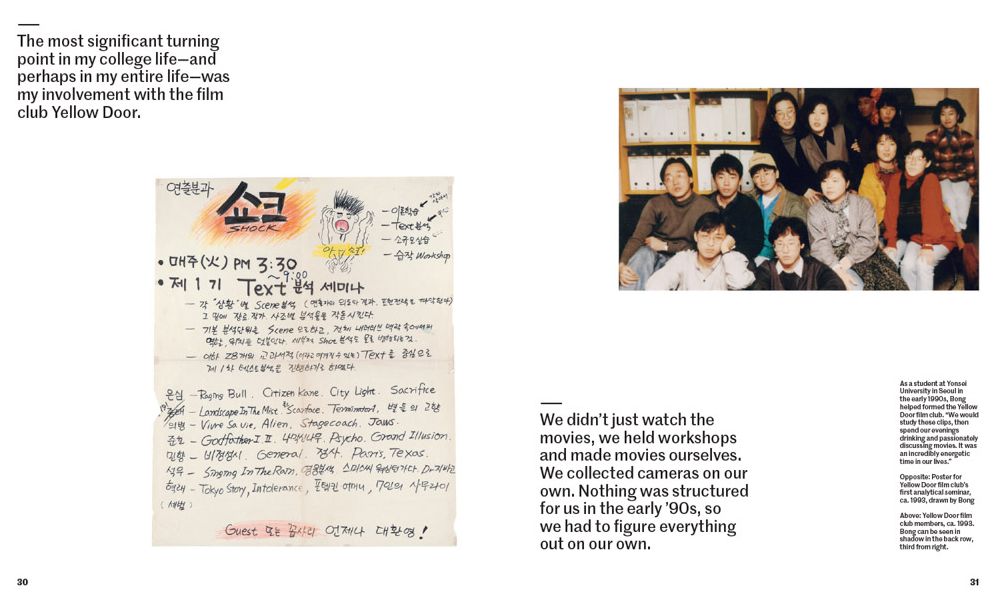 The most significant turning
point in my college life—and
perhaps in my entire life—was
my involvement with the film
club Yellow Door.
연출분과
쇼크
SHOCK
— 이론학습
— Text분석
— 소규모실습
— 습작 Workshop
• 매주(火) PM 3:30
~9:00
• 제 1 기 Text 분석 세미나
— 각 "상황"별 Scene분석
— 기본 분석단위를 Scene 으로하고, 전체 내러티브 맥락 속에서의
— 이하 28개의 교과서적 Text를 중심으로
제 1차 텍스트분석은 진행하기로 하였다.
은심 — Raging Bull. Citizen Kane. City Light. Sacrifice
— Landscape In The Mist. Scarface. Terminator1, 별들의 고향
의범 — Vivre Sa vie, Alien, Stagecoach. Jaws.
준호 — Godfather I. II. Psycho. Grand Illusion.
민향 — 비정성시. General. Paris, Texas.
석우 — Singing In The Rain, 스미스씨 워싱턴가다. Dr.지바고
혁래 — Tokyo Story, Intolerance, 어머니, 7인의 사무라이
(세범)
Guest 또는 꼽사리 언제나 대환영!
30
We didn't just watch the
movies, we held workshops
and made movies ourselves.
We collected cameras on our
own. Nothing was structured
for us in the early '90s, so
we had to figure everything
out on our own.
As a student at Yonsei
University in Seoul in
the early 1990s, Bong
helped formed the Yellow
Door film club. "We would
study these clips, then
spend our evenings
drinking and passionately
discussing movies. It was
an incredibly energetic
time in our lives."
Opposite: Poster for
Yellow Door film club's
first analytical seminar,
ca. 1993, drawn by Bong
Above: Yellow Door film
club members, ca. 1993.
Bong can be seen in
shadow in the back row,
third from right.
31